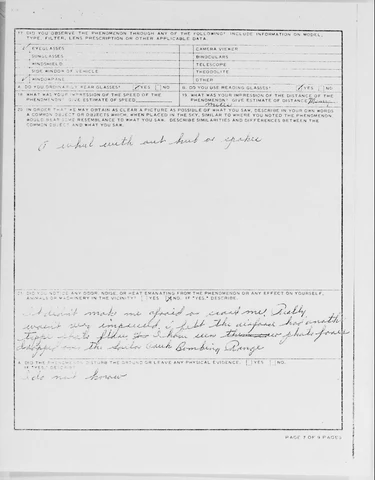 DID YOU OBSERVE THE PHENOMENON THROUGH ANY OF THE FOLLOWING? INCLUDE INFORMATION ON MODEL,
TYPE, FILTER, LENS PRESCRIPTION OR OTHER APPLICABLE DATA.
EYEGLASSES CAMERA VIEWER
SUNGLASSES BINOCULARS
WINDSHIELD TELESCOPE
SIDE WINDOW OF VEHICLE THEODOLITE
WINDOWPANE OTHER
A. DO YOU ORDINARILY WEAR GLASSES? YES NO B. DO YOU USE READING GLASSES? YES NO
WHAT WAS YOUR IMPRESSION OF THE SPEED OF THE
PHENOMENON? GIVE ESTIMATE OF SPEED
WHAT WAS YOUR IMPRESSION OF THE DISTANCE OF THE
PHENOMENON? GIVE ESTIMATE OF DISTANCE
miles
IN ORDER THAT WE MAY OBTAIN AS CLEAR A PICTURE AS POSSIBLE OF WHAT YOU SAW, DESCRIBE IN YOUR OWN WORDS
A COMMON OBJECT OR OBJECTS WHICH, WHEN PLACED IN THE SKY, SIMILAR TO WHERE YOU NOTED THE PHENOMENON,
WOULD BEAR SOME RESEMBLANCE TO WHAT YOU SAW. DESCRIBE SIMILARITIES AND DIFFERENCES BETWEEN THE
COMMON OBJECT AND WHAT YOU SAW.
A wheel with out hub or spokes
DID YOU NOTICE ANY ODOR, NOISE, OR HEAT EMANATING FROM THE PHENOMENON OR ANY EFFECT ON YOURSELF,
ANIMALS OR MACHINERY IN THE VICINITY? YES NO. IF "YES," DESCRIBE.
It didn't make me afraid or scare me. Really
wasn't very impressed, I felt the airforce had another
type I have seen photo
over the Bombing Range
DID THE PHENOMENON DISTURB THE GROUND OR LEAVE ANY PHYSICAL EVIDENCE. YES NO.
IF "YES," DESCRIBE
I do not know
PAGE 3 OF 4 PAGES